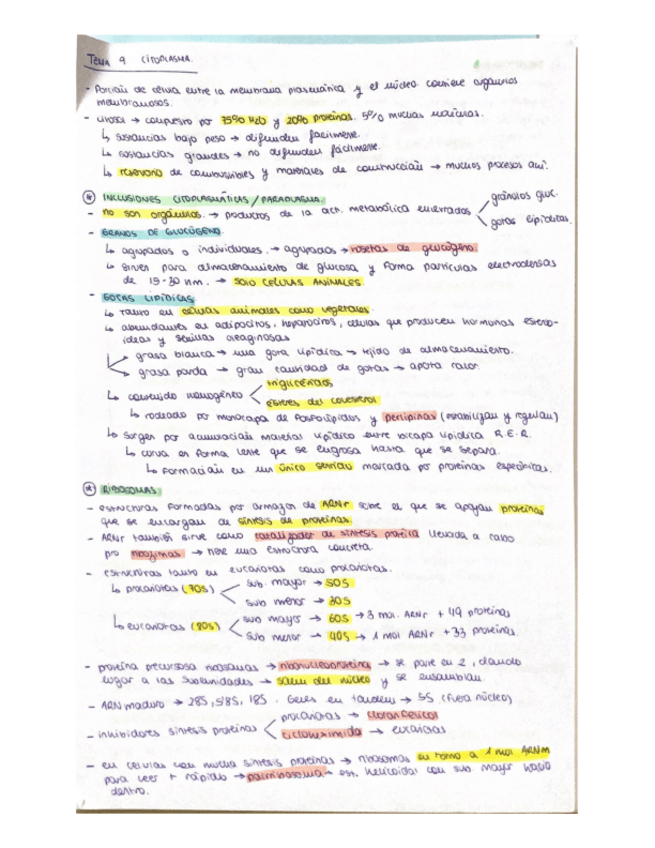 TEMA 9 CITOPLASMA.
- Porción de célula entre la membrana plasmática y el núcleo. contiene orgánulos
membranosos.
- citosol → compuesto por 75% H2O y 20% proteínas. 5%
↳ sustancias bajo peso → difunden fácilmente.
↳ sustancias grandes → no difunden fácilmente.
↳ reservorio de combustibles y materiales de construcción → muchos procesos aquí.
* INCLUSIONES CITOPLASMÁTICAS / PARAPLASMA.
- no son orgánulos. → productos de la act. metabólica encerrados < gránulos gluc.
gotas lipídicas.
- GRANOS DE GLUCÓGENO.
↳ agrupados o individuales. → agrupados → rosetas de glucógeno.
↳ sirven para almacenamiento de glucosa y forma partículas electrodensas
de 15-30 nm. → SOLO CÉLULAS ANIMALES.
- GOTAS LIPÍDICAS
↳ tanto en células animales como vegetales.
↳ abundantes en adipocitos, hepatocitos, células que producen hormonas estero-
ideas y semillas oleaginosas
grasa blanca → una gota lipídica → tejido de almacenamiento.
grasa parda → gran cantidad de gotas → aporta calor.
↳ contenido homogéneo < triglicéridos
ésteres del colesterol
↳ rodeado por monocapa de fosfolípidos y perilipinas (estabilizan y regulan)
↳ Surgen por acumulación material lipídico entre bicapa lipídica R.E.R.
↳ curva en forma lente que se engrosa hasta que se separa.
↳ formación en un único sentido marcada por proteínas específicas.
* RIBOSOMAS
- estructuras formadas por armazón de ARNr sobre el que se apoyan proteínas
que se encargan de síntesis de proteínas.
- ARNr también sirve como catalizador de síntesis proteica llevada a cabo
por ribozimas → tiene una estructura concreta.
- estructuras tanto en eucariotas como procariotas.
↳ procariotas (70S) < sub. mayor → 50S
sub menor → 30S
↳ eucariotas (80S) < sub mayor → 60S → 3 mol. ARNr + 49 proteínas
sub menor → 40S → 1 mol ARNr + 33 proteínas.
- proteína precursora ribosomas → ribonucleoproteína → se parte en 2, dando
lugar a las subunidades → salen del núcleo y se ensamblan.
- ARN maduro → 28S, 5'8S, 18S. Genes en tándem → 5S (fuera núcleo)
- inhibidores síntesis proteínas < procariotas → cloranfenicol
cicloheximida → eucariotas
- en células con mucha síntesis proteínas → ribosomas en torno a 1 mol ARNm
para leer + rápido → polirribosoma → est. helicoidal con sub mayor hacia
dentro.